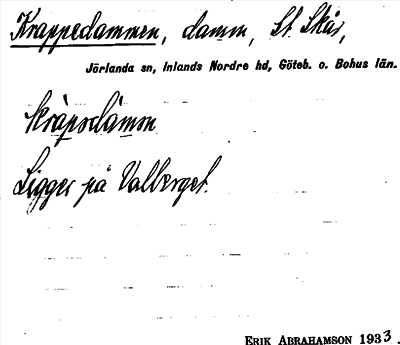 Krappedammen, damm, St. Skår,
Jörlanda sn, Inlands Nordre hd, Göteb. o. Bohus län.
skràpsdåmən
Ligger på Valberget.
ERIK ABRAHAMSON 1933.